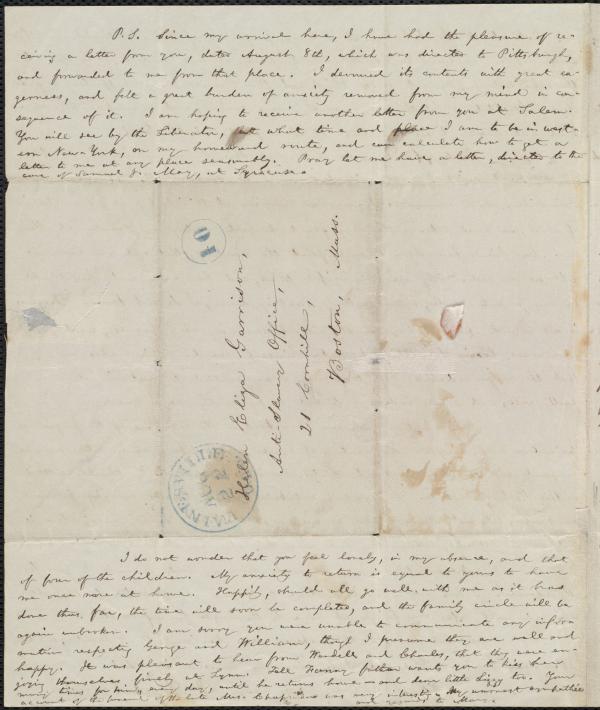 P.S. Since my arrival here, I have had the pleasure of re-
ceiving a letter from you, dated August 8th, which was directed to Pittsburgh,
and forwarded to me from that place. I devoured its contents with great ea-
gerness, and felt a great burden of anxiety removed from my mind in con-
sequence of it. I am hoping to receive another letter from you at Salem.
You will see by the Liberator, at what time and place I am to be in west-
ern New-York, on my homeward route, and can calculate how to get a
letter to me at any place seasonably. Pray let me have a letter, directed to the
care of Samuel J. May, at Syracuse.
10
Helen Eliza Garrison,
Anti-Slavery Office,
21 Cornhill,
Boston, Mass.
PAINESVILLE
AUG
22
I do not wonder that you feel lonely, in my absence, and that
of four of the children. My anxiety to return is equal to yours to have
me once more at home. Happily, should all go well with me as it has
done thus far, the time will soon be completed, and the family circle will be
again unbroken. I am sorry you were unable to communicate any infor-
mation respecting George and William, though I presume they are well and
happy. It was pleasant to hear from Wendell and Charles, that they were en-
joying themselves finely at Lynn. Tell Fanny father wants you to kiss her
many times for him, every day, until he returns home and dear little Lizzy too. Your
account of the of Mrs. Chapman was very interesting. My warmest sympathies
and regards to Mary.